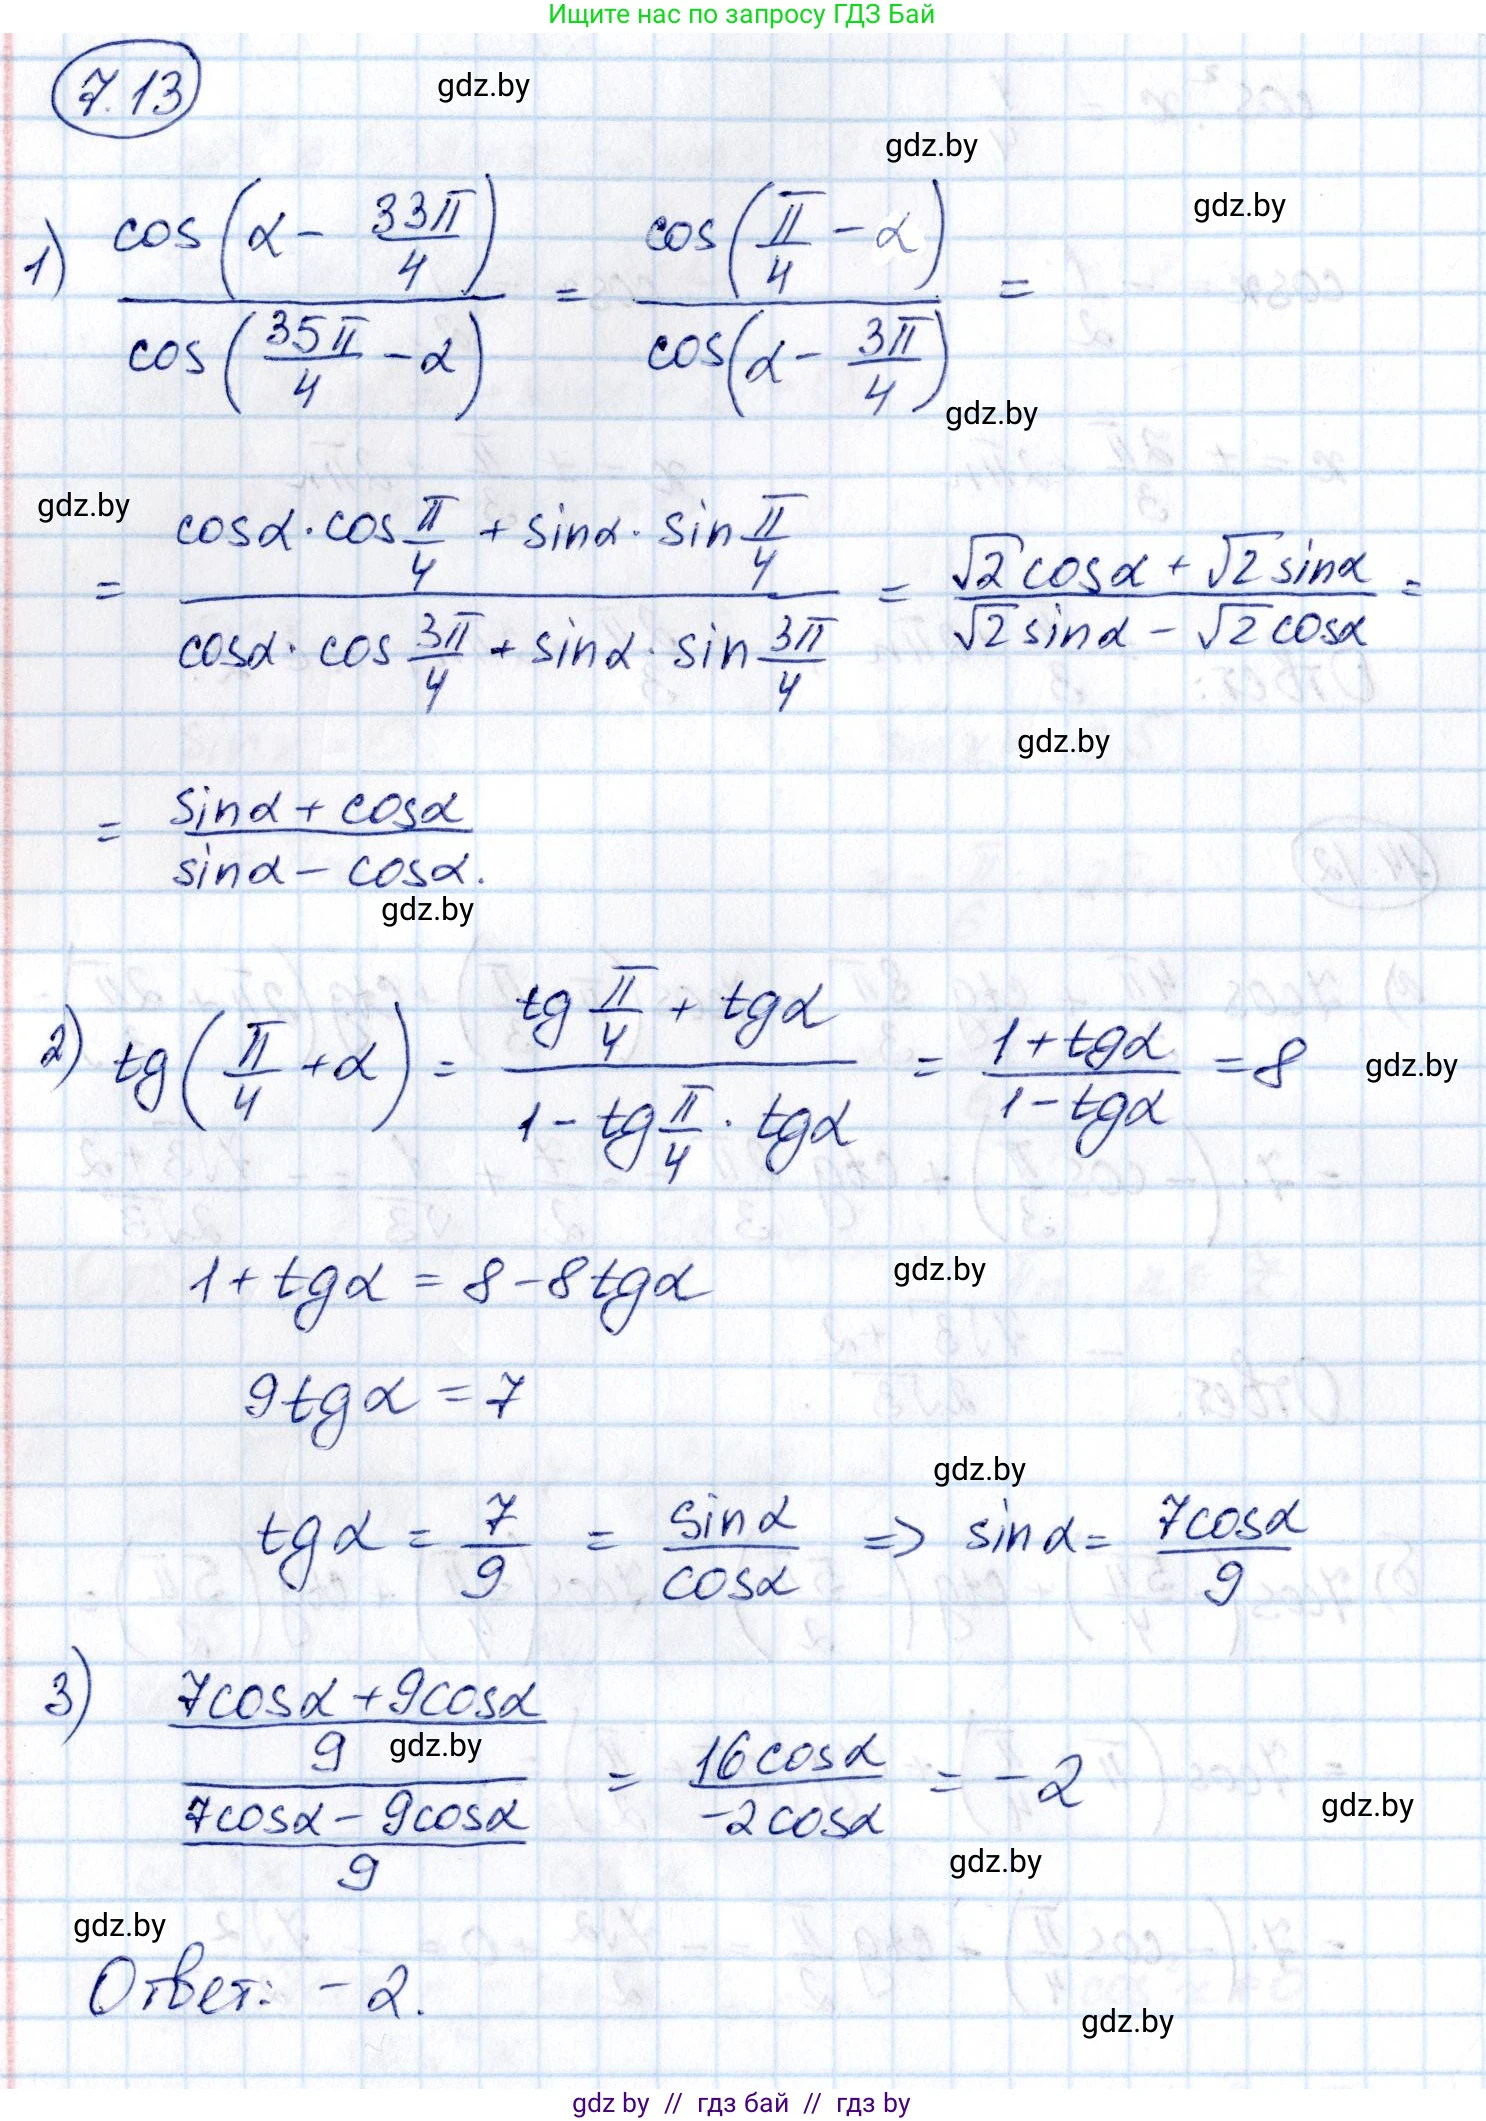 Ищите нас по запросу ГДЗ Бай
7.13
gdz.by
gdz.by
gdz.by
1) cos(α - 33π/4) / cos(35π/4 - α) = cos(π/4 - α) / cos(α - 3π/4) =
gdz.by
gdz.by
= (cosα · cos π/4 + sinα · sin π/4) / (cosα · cos 3π/4 + sinα · sin 3π/4) = (√2 cosα + √2 sinα) / (√2 sinα - √2 cosα) =
gdz.by
= (sinα + cosα) / (sinα - cosα).
gdz.by
2) tg(π/4 + α) = (tg π/4 + tgα) / (1 - tg π/4 · tgα) = (1 + tgα) / (1 - tgα) = 8
gdz.by
1 + tgα = 8 - 8tgα
gdz.by
9tgα = 7
gdz.by
tgα = 7/9 = sinα/cosα => sinα = 7cosα/9
3) ((7cosα + 9cosα)/9) / ((7cosα - 9cosα)/9) = 16cosα / -2cosα = -2
gdz.by
gdz.by
gdz.by
gdz.by
Ответ: -2.
gdz.by
gdz by // гдз бай // гдз by